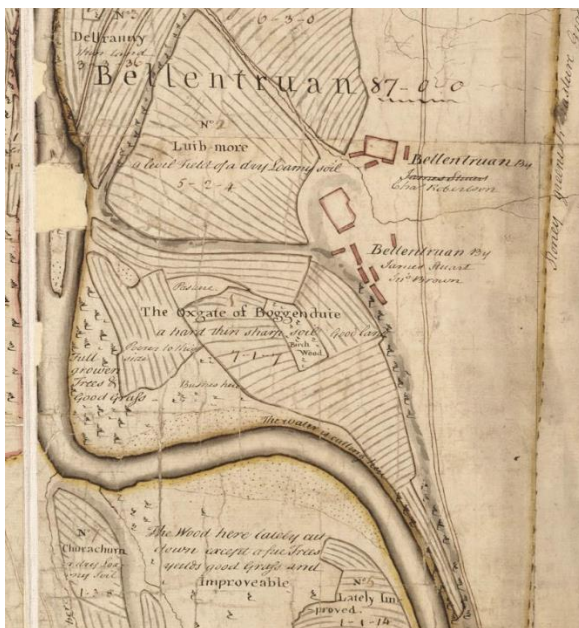 Nº
Delfranny
thin Land
3-3-36
6-3-0
Bellentruan 87-0-0
Nº 2
Luib-more
a level Field of a dry Loamy soil
5-2-4
Bellentruan By
James Stuart
Chaˢ Robertson
Bellentruan By
James Stuart
Jnº Brown
Stoney greenish Pasture
The Oxgate of Boggenduie
a hard thin sharp soil
Good land
Birch
Wood
7-1-7
Poorer to this
side
Full
growen
Trees &
Good Grass
Bushes here
The water is cutting here
Nº 7
Chorachurn
a dry loa
my soil
1-3-6
The Wood here lately cut
down except a few Trees
yields good Grass and
Improveable
Nº 6
Lately Im-
proved
1-1-14